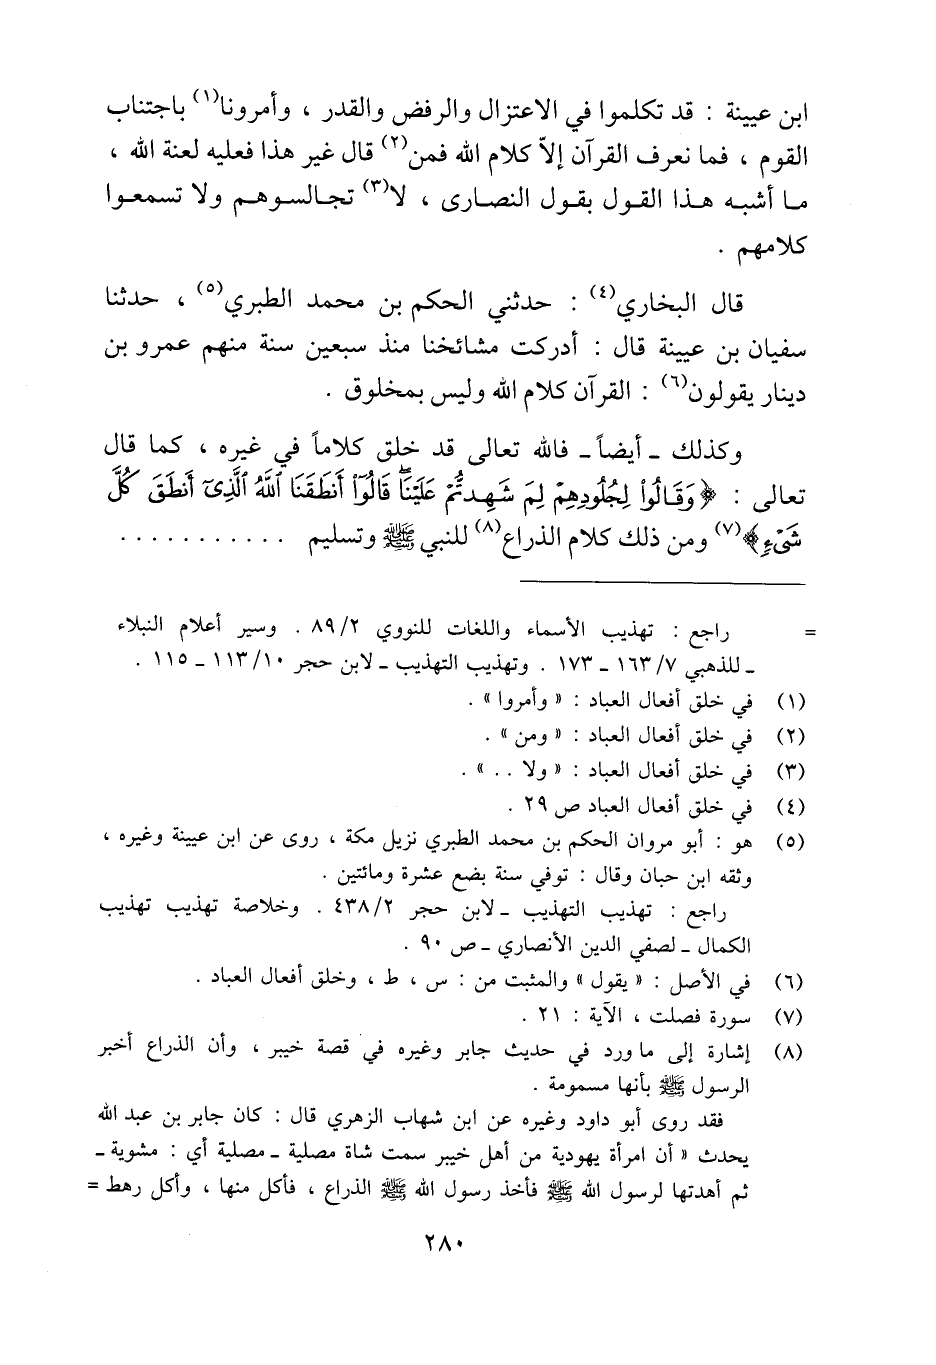 ابن عيينة : قد تكلموا في الاعتزال والرفض والقدر ، وأمرونا(١) باجتناب
القوم ، فما نعرف القرآن إلاّ كلام الله فمن(٢) قال غير هذا فعليه لعنة الله ،
ما أشبه هذا القول بقول النصارى ، لا(٣) تجالسوهم ولا تسمعوا
كلامهم .
قال البخاري(٤) : حدثني الحكم بن محمد الطبري(٥) ، حدثنا
سفيان بن عيينة قال : أدركت مشائخنا منذ سبعين سنة منهم عمرو بن
دينار يقولون(٦) : القرآن كلام الله وليس بمخلوق .
وكذلك ـ أيضاً ـ فالله تعالى قد خلق كلاماً في غيره ، كما قال
تعالى : ﴿وَقَالُواْ لِجُلُودِهِمْ لِمَ شَهِدتُّمْ عَلَيْنَاۖ قَالُوٓاْ أَنطَقَنَا ٱللَّهُ ٱلَّذِىٓ أَنطَقَ كُلَّ
شَىْءٍ﴾(٧) ومن ذلك كلام الذراع(٨) للنبي ﷺ وتسليم . . . . . . . . . . .
= راجع : تهذيب الأسماء واللغات للنووي ٨٩/٢ . وسير أعلام النبلاء
ـ للذهبي ١٦٣/٧ ـ ١٧٣ . وتهذيب التهذيب ـ لابن حجر ١١٣/١٠ ـ ١١٥ .
(١) في خلق أفعال العباد : « وأمروا » .
(٢) في خلق أفعال العباد : « ومن » .
(٣) في خلق أفعال العباد : « ولا . . » .
(٤) في خلق أفعال العباد ص ٢٩ .
(٥) هو : أبو مروان الحكم بن محمد الطبري نزيل مكة ، روى عن ابن عيينة وغيره ،
وثقه ابن حبان وقال : توفي سنة بضع عشرة ومائتين .
راجع : تهذيب التهذيب ـ لابن حجر ٤٣٨/٢ . وخلاصة تهذيب تهذيب
الكمال ـ لصفي الدين الأنصاري ـ ص ٩٠ .
(٦) في الأصل : « يقول » والمثبت من : س ، ط ، وخلق أفعال العباد .
(٧) سورة فصلت ، الآية : ٢١ .
(٨) إشارة إلى ما ورد في حديث جابر وغيره في قصة خيبر ، وأن الذراع أخبر
الرسول ﷺ بأنها مسمومة .
فقد روى أبو داود وغيره عن ابن شهاب الزهري قال : كان جابر بن عبد الله
يحدث « أن امرأة يهودية من أهل خيبر سمت شاة مصلية ـ مصلية أي : مشوية ـ
ثم أهدتها لرسول الله ﷺ فأخذ رسول الله ﷺ الذراع ، فأكل منها ، وأكل رهط =
٢٨٠